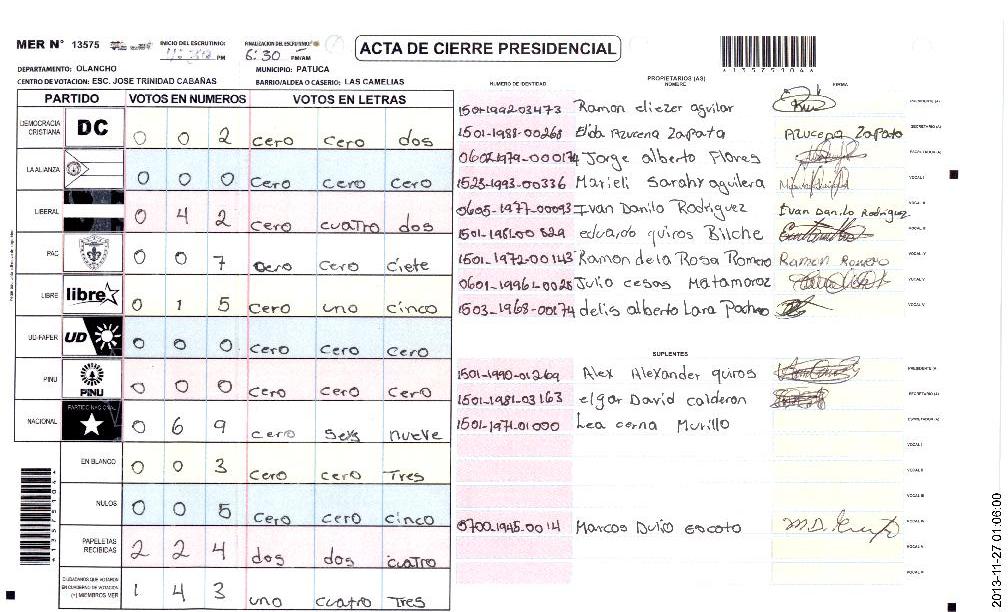 MER N° 13575 INICIO DEL ESCRUTINIO: PM FINALIZACION DEL ESCRUTINIO: 6:30 PM/AM ACTA DE CIERRE PRESIDENCIAL
DEPARTAMENTO: OLANCHO MUNICIPIO: PATUCA
CENTRO DE VOTACION: ESC. JOSE TRINIDAD CABAÑAS BARRIO/ALDEA O CASERIO: LAS CAMELIAS
PARTIDO VOTOS EN NUMEROS VOTOS EN LETRAS
DEMOCRACIA CRISTIANA DC 0 0 2 cero cero dos
LA ALIANZA 0 0 0 cero cero cero
LIBERAL 0 4 2 cero cuatro dos
PAC 0 0 7 cero cero ciete
LIBRE libre 0 1 5 cero uno cinco
UD-FAPER UD 0 0 0 cero cero cero
PINU PINU 0 0 0 cero cero cero
NACIONAL PARTIDO NACIONAL 0 6 9 cero seis nueve
EN BLANCO 0 0 3 cero cero Tres
NULOS 0 0 5 cero cero cinco
PAPELETAS RECIBIDAS 2 2 4 dos dos cuatro
CIUDADANOS QUE VOTARON EN CUADERNO DE VOTACION (+) MIEMBROS MER 1 4 3 uno cuatro Tres
NUMERO DE IDENTIDAD PROPIETARIOS (AS) NOMBRE FIRMA
1501-1992-03473 Ramon eliezer aguilar PRESIDENTE (A)
1501-1988-00268 Elda Azucena Zapata Azucena Zapata SECRETARIO (A)
0602-1979-000174 Jorge alberto Flores ESCRUTADOR (A)
1523-1993-00336 Marieli Sarahy aguilera VOCAL I
0605-1977-00093 Ivan Danilo Rodriguez Ivan Danilo Rodriguez VOCAL II
1501-1981-00 829 eduardo quiros Bilche VOCAL III
1501-1972-00143 Ramon de la Rosa Romero Ramon Romero VOCAL IV
0601-1996-0028 Julio cesas Matamoroz VOCAL V
1503-1968-00174 delis alberto Lara Pacheco VOCAL V
SUPLENTES
1501-1990-01269 Alex Alexander quiros PRESIDENTE (A)
1501-1981-03163 elgar David calderon SECRETARIO (A)
1501-1971-01000 Lea cerna Murillo ESCRUTADOR (A)
VOCAL I
VOCAL II
VOCAL III
0700-1945-0014 Marcos Dulio escoto VOCAL IV
VOCAL V
VOCAL VI
2013-11-27 01:06:00